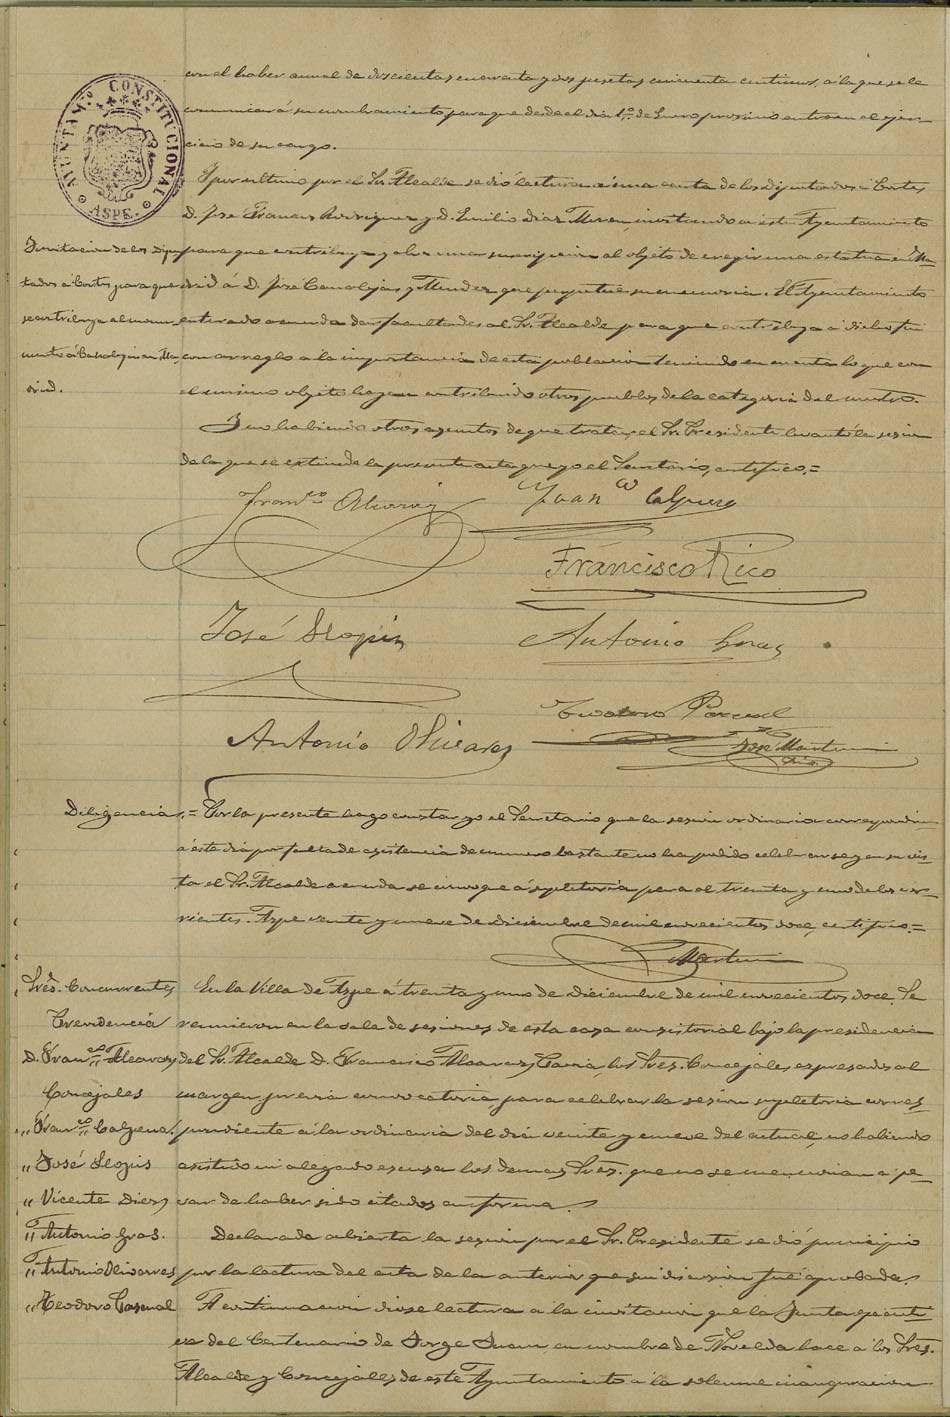 AYUNTAM.º CONSTITUCIONAL
ASPE.
con el haber anual de doscientas cuarenta y dos pesetas cincuenta centimos, a la que se le
comunicará su nombramiento para que desde el dia 1º de Enero proximo entre en el ejer-
cicio de su cargo.
Y por ultimo por el Sr. Alcalde se dió lectura a una carta de los Diputados á Cortes
D. José Francos Rodriguez y D. Emilio Diaz Moreu, invitando a este Ayuntamiento
para que contribuya y abra una suscripcion al objeto de erigir una estatua en Ma-
drid á D. José Canalejas y Mendez que perpetue su memoria. El Ayuntamiento
enterado acuerda dar facultades al Sr. Alcalde para que contribuya a dicho fin
con arreglo a la importancia de esta poblacion teniendo en cuenta lo que con
el mismo objeto hayan contribuido otros pueblos de la categoria del nuestro.
Invitacion de los Dipu-
tados a Cortes para que
se contribuya al monu-
mento á Canalejas en Ma-
drid.
Y no habiendo otros asuntos de que tratar, el Sr. Presidente levantó la sesion
de la que se extiende la presente acta que yo el Secretario, certifico.=
Franco Alcaraz
Juan Calpena
Francisco Rico
José Llopis
Antonio Gras
Teodoro Pascual
Antonio Olivares
José Martinez
Srio.
Diligencia.= Por la presente hago constar yo el Secretario que la sesion ordinaria correspondien-
a este dia por falta de asistencia de numero bastante no ha podido celebrarse y en su vis-
ta el Sr. Alcalde acuerda se convoque á supletoria para el treinta y uno de los co-
rrientes. Aspe veinte y nueve de Diciembre de mil novecientos doce, certifico.=
Martinez
Sres. Concurrentes
Presidencia
D. Franco Alcaraz
Concejales
" Franco Calpena
" José Llopis
" Vicente Diez
" Antonio Gras.
" Antonio Olivares
" Teodoro Pascual
En la Villa de Aspe á treinta y uno de Diciembre de mil novecientos doce. Se
reunieron en la sala de sesiones de esta casa consistorial bajo la presidencia
del Sr. Alcalde D. Francisco Alcaraz, los Sres. Concejales expresados al
margen previa convocatoria, para celebrar la sesion supletoria corres-
pondiente á la ordinaria del dia veinte y nueve del actual, no habiendo
asistido ni alegado escusa los demas Sres. que no se mencionan a pe-
sar de haber sido citados en forma.
Declarada abierta la sesion por el Sr. Presidente se dió principio
por la lectura del acta de la anterior que sin discusion fué aprobada.
A continuacion diose lectura a la invitacion que la Junta ejecuti-
va del Centenario de Jorge Juan, en nombre de Novelda hace a los Sres.
Alcalde y Concejales de este Ayuntamiento a la solemne inauguracion